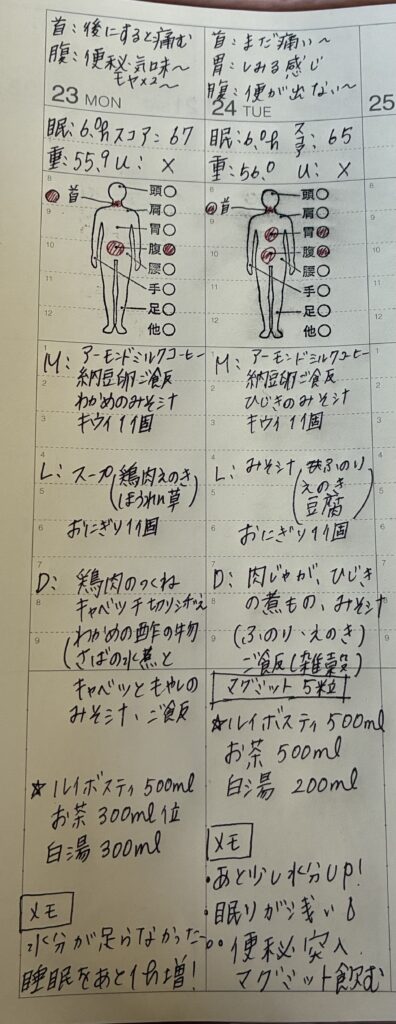 首:後にすると痛む
腹:便秘気味〜
モヤ×2〜
23 MON
眠:6.0h スコアー:67
重:55.9 U: ×
首
頭
肩
胃
腹
腰
手
足
他
M: アーモンドミルクコーヒー
納豆卵ご飯
わかめのみそ汁
キウイ 1個
L: スープ(鶏肉えのき
ほうれん草)
おにぎり 1個
D: 鶏肉のつくね
キャベツ千切り
わかめの酢の物
(さばの水煮と
キャベツともやしの
みそ汁、ご飯
☆ルイボスティ 500ml
お茶 300ml位
白湯 300ml
メモ
水分が足らなかった〜
睡眠をあと1h増!
首:まだ痛い〜
胃:しみる感じ
腹:便が出ない〜
24 TUE
眠:6.0h スコア:65
重:56.0 U: ×
首
頭
肩
胃
腹
腰
手
足
他
M: アーモンドミルクコーヒー
納豆卵ご飯
ひじきのみそ汁
キウイ 1個
L: みそ汁(ふのり
えのき
豆腐)
おにぎり 1個
D: 肉じゃが、ひじき
の煮もの、みそ汁
(ふのり・えのき)
ご飯(雑穀)
マグミット 5粒
☆ルイボスティ 500ml
お茶 500ml
白湯 200ml
メモ
・あと少し水分UP!
・眠りが浅い
・便秘突入
マグミット飲む
25